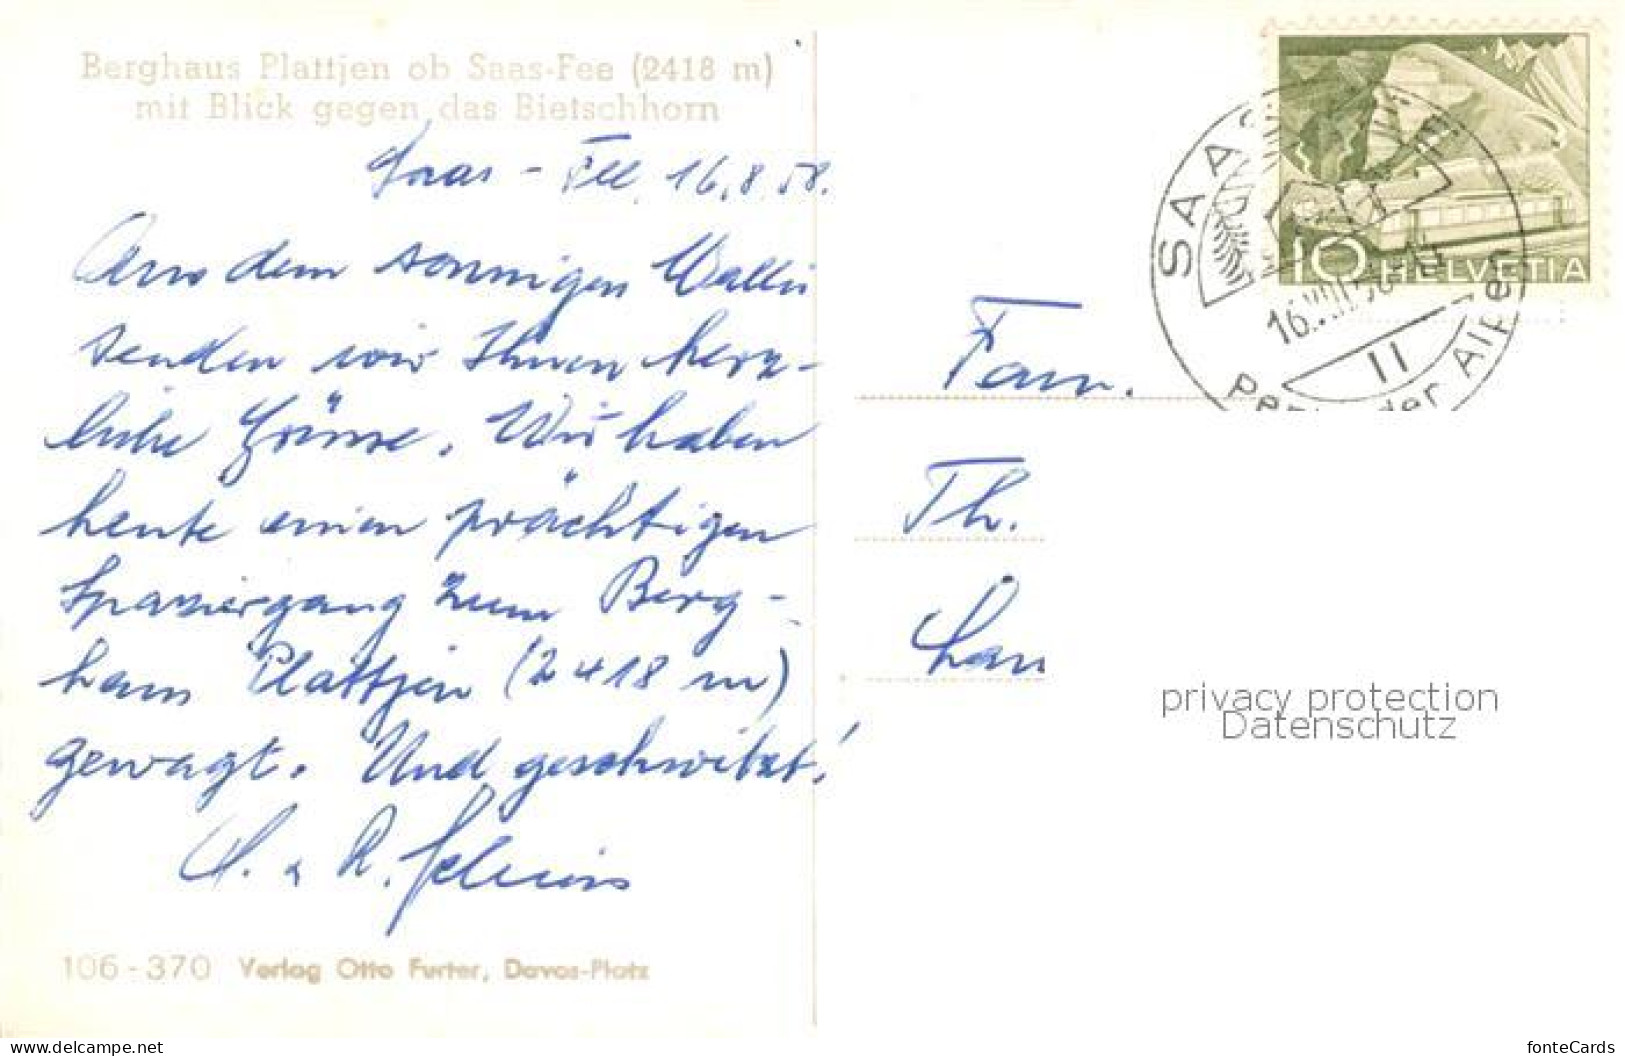 Berghaus Plattjen ob Saas-Fee (2418 m)
mit Blick gegen das Bietschhorn
Saas - Fee, 16.8.58.
Aus dem sonnigen Wallis
senden wir Ihnen herz-
liche Grüsse. Wir haben
heute einen prächtigen
Spaziergang zum Berg-
haus Plattjen (2418 m)
gewagt. Und geschwitzt!
& R.
106-370 Verlag Otto Furter, Davos-Platz
10 HELVETIA
SAAS-FEE
16.VIII.58
11
Perle der Alpen
Fam.
Th.
privacy protection
Datenschutz
www.delcampe.net
fonteCards